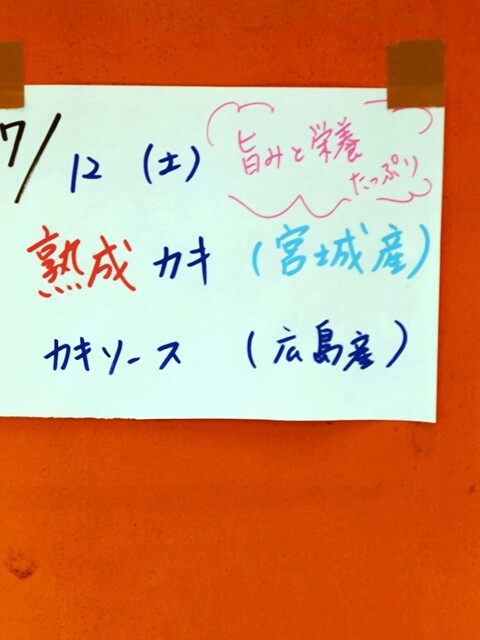 7/12(土)
旨みと栄養
たっぷり
熟成カキ(宮城産)
カキソース(広島産)